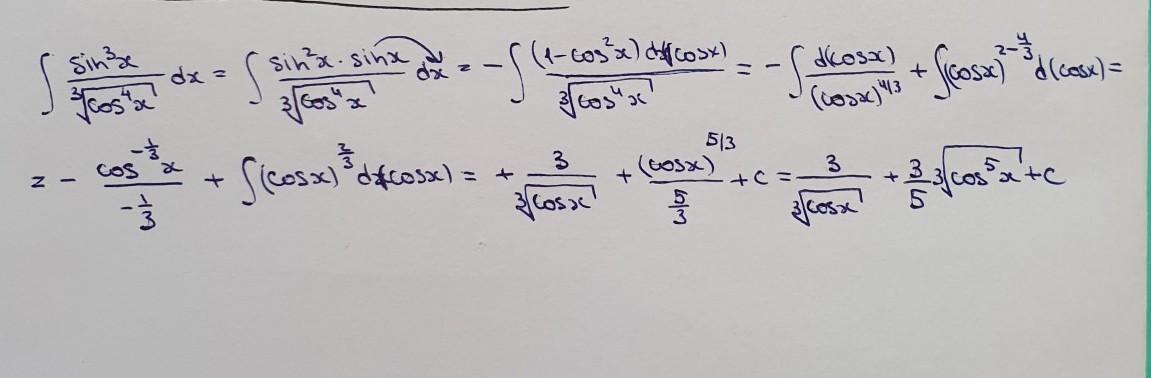 ∫ sin³x / ∛(cos⁴x) dx = ∫ (sin²x · sinx) / ∛(cos⁴x) dx = - ∫ (1-cos²x) d(cosx) / ∛(cos⁴x) = - ∫ d(cosx) / (cosx)^(4/3) + ∫ (cosx)^(2-4/3) d(cosx) =
= - cos^(-1/3)x / (-1/3) + ∫ (cosx)^(2/3) d(cosx) = + 3 / ∛(cosx) + (cosx)^(5/3) / (5/3) + c = 3 / ∛(cosx) + 3/5 ∛(cos⁵x) + c